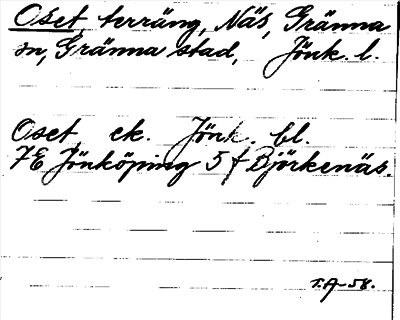 Oset terräng, Näs, Gränna
sn, Gränna stad, Jönk. l.
Oset ek. Jönk. bl.
7E Jönköping 5 f Björkenäs.
T.A-58.